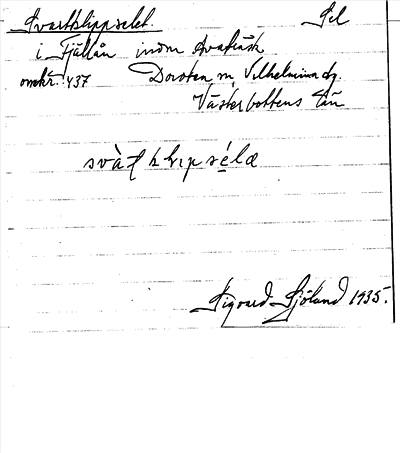 Svartklippselet. Sel
i Fjällån inom Avafisk
omkr. 437 Dorotea m. Vilhelmina dg.
Västerbottens län
svàʈ kḷɩp séla
Sigvard Sjöland 1935.